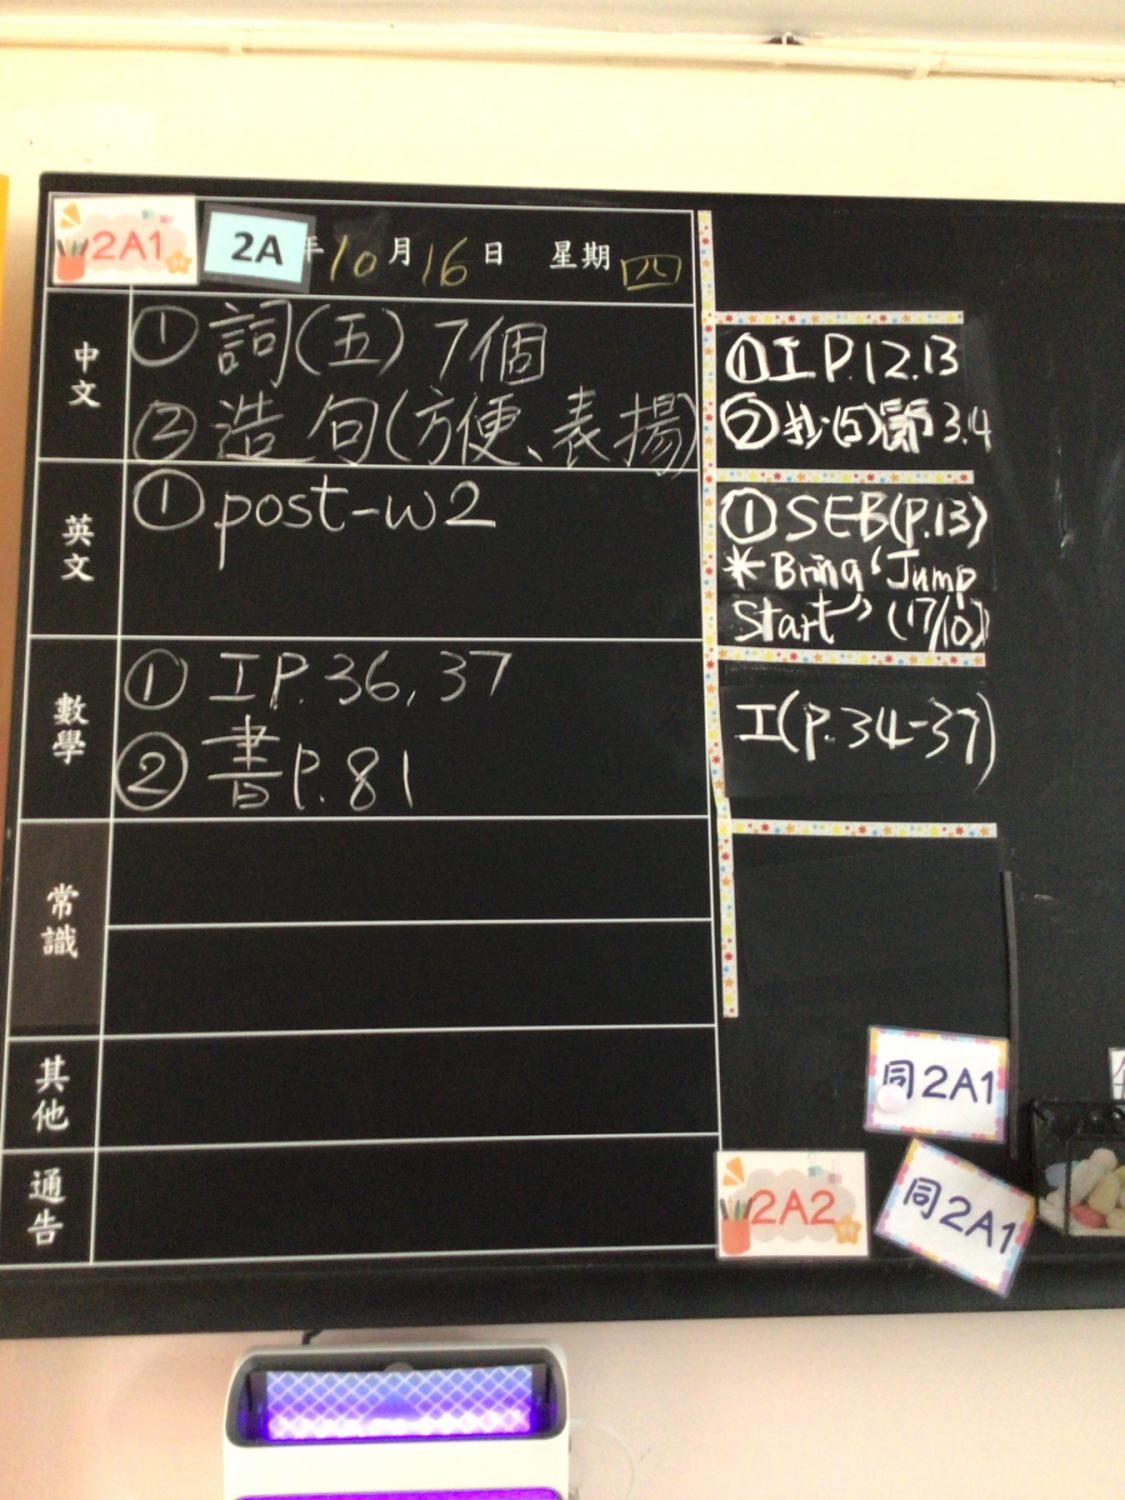 2A1 2A 年10月16日 星期四
中文
① 詞(五) 7個
② 造句(方便、表揚)
英文
① post-w2
數學
① 工P.36, 37
② 書P.81
常識
其他
通告
① 工 P.12.13
② 抄(5)節 3.4
① SEB(P.13)
* Bring 'Jump
Start' (17/10)
工(P.34-37)
同2A1
2A2
同2A1